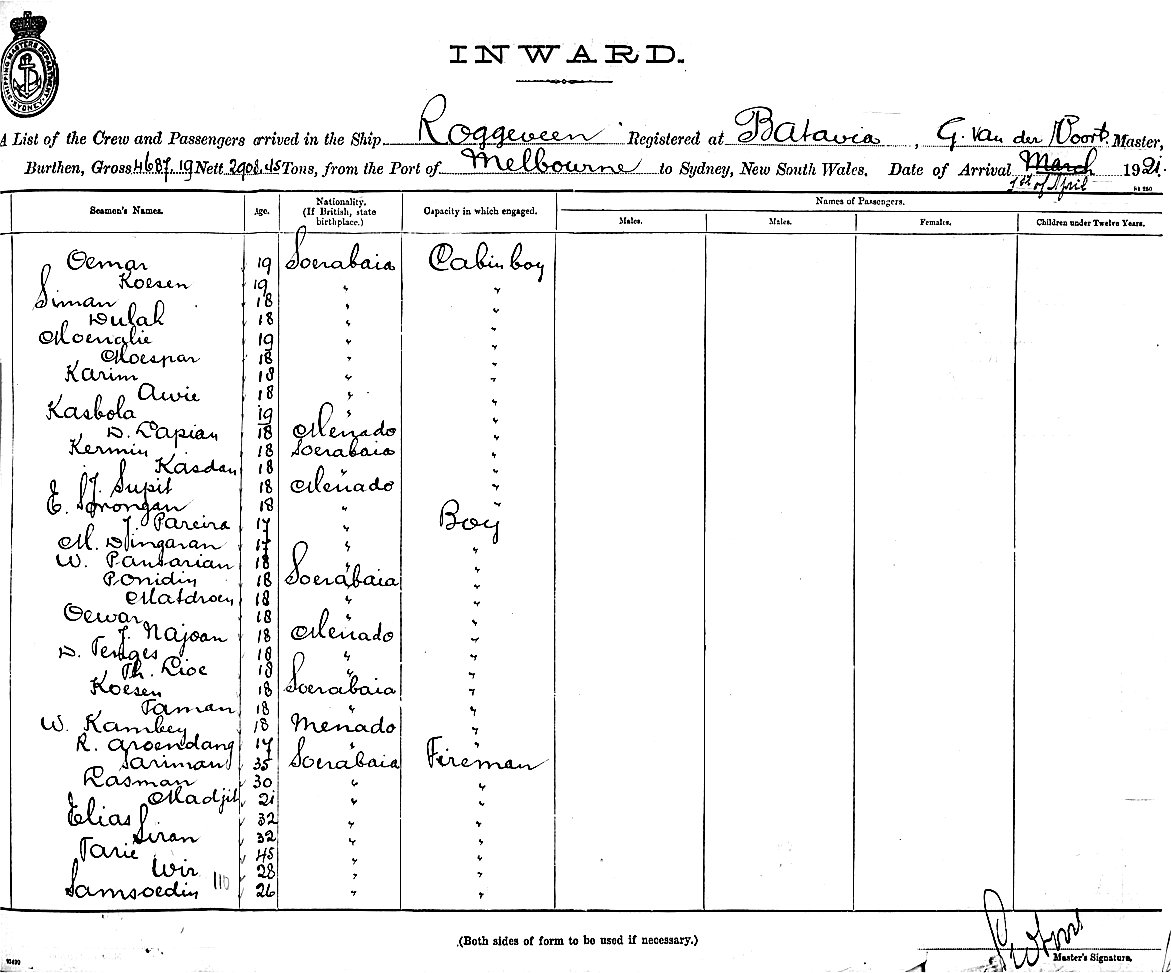 SHIPPING MASTERS DEPARTMENT SYDNEY
INWARD.
A List of the Crew and Passengers arrived in the Ship Roggeveen Registered at Batavia, G. van der Voort. Master,
Burthen, Gross 4687.19 Nett 2908.45 Tons, from the Port of Melbourne to Sydney, New South Wales. Date of Arrival March 1921.
1st of April
Seamen's Names. Age. Nationality. (If British, state birthplace.) Capacity in which engaged. Names of Passengers.
Males. Males. Females. Children under Twelve Years.
Oemar 19 Soerabaia Cabin boy
Koesen 19 " "
Siman 18 " "
Dulah 18 " "
Moenalie 19 " "
Moespar 18 " "
Karim 18 " "
Awie 18 " "
Kasbola 19 " "
D. Lapian 18 Menado "
Kermin 18 Soerabaia "
Kasdan 18 " "
E. J. Supit 18 Menado "
E. 18 " "
J. Pareira 17 " Boy
M. Dingaran 17 " "
W. Pantarian 18 " "
Ponidin 18 Soerabaia "
Matdroen 18 " "
Oewar 18 " "
J. Najoan 18 Menado "
D. Tenges 18 " "
Th. Lioe 18 " "
Koesen 18 Soerabaia "
Taman 18 " "
W. Kambey 18 Menado "
R. Aroendang 17 " "
Sariman 35 Soerabaia Fireman
Rasman 30 " "
Madjit 21 " "
Elias 32 " "
Siran 32 " "
Tarie 45 " "
Wir 28 " "
Samsoedin 26 " "
(Both sides of form to be used if necessary.)
Master's Signature.